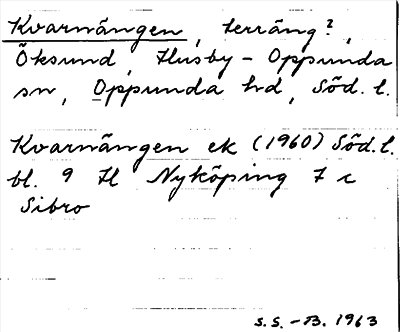 Kvarnängen, terräng?,
Öksund, Husby-Oppunda
sn, Oppunda hd, Söd. l.
Kvarnängen ek (1960) Söd. l.
bl. 9 H Nyköping 7 c
Sibro
S.S.-B. 1963